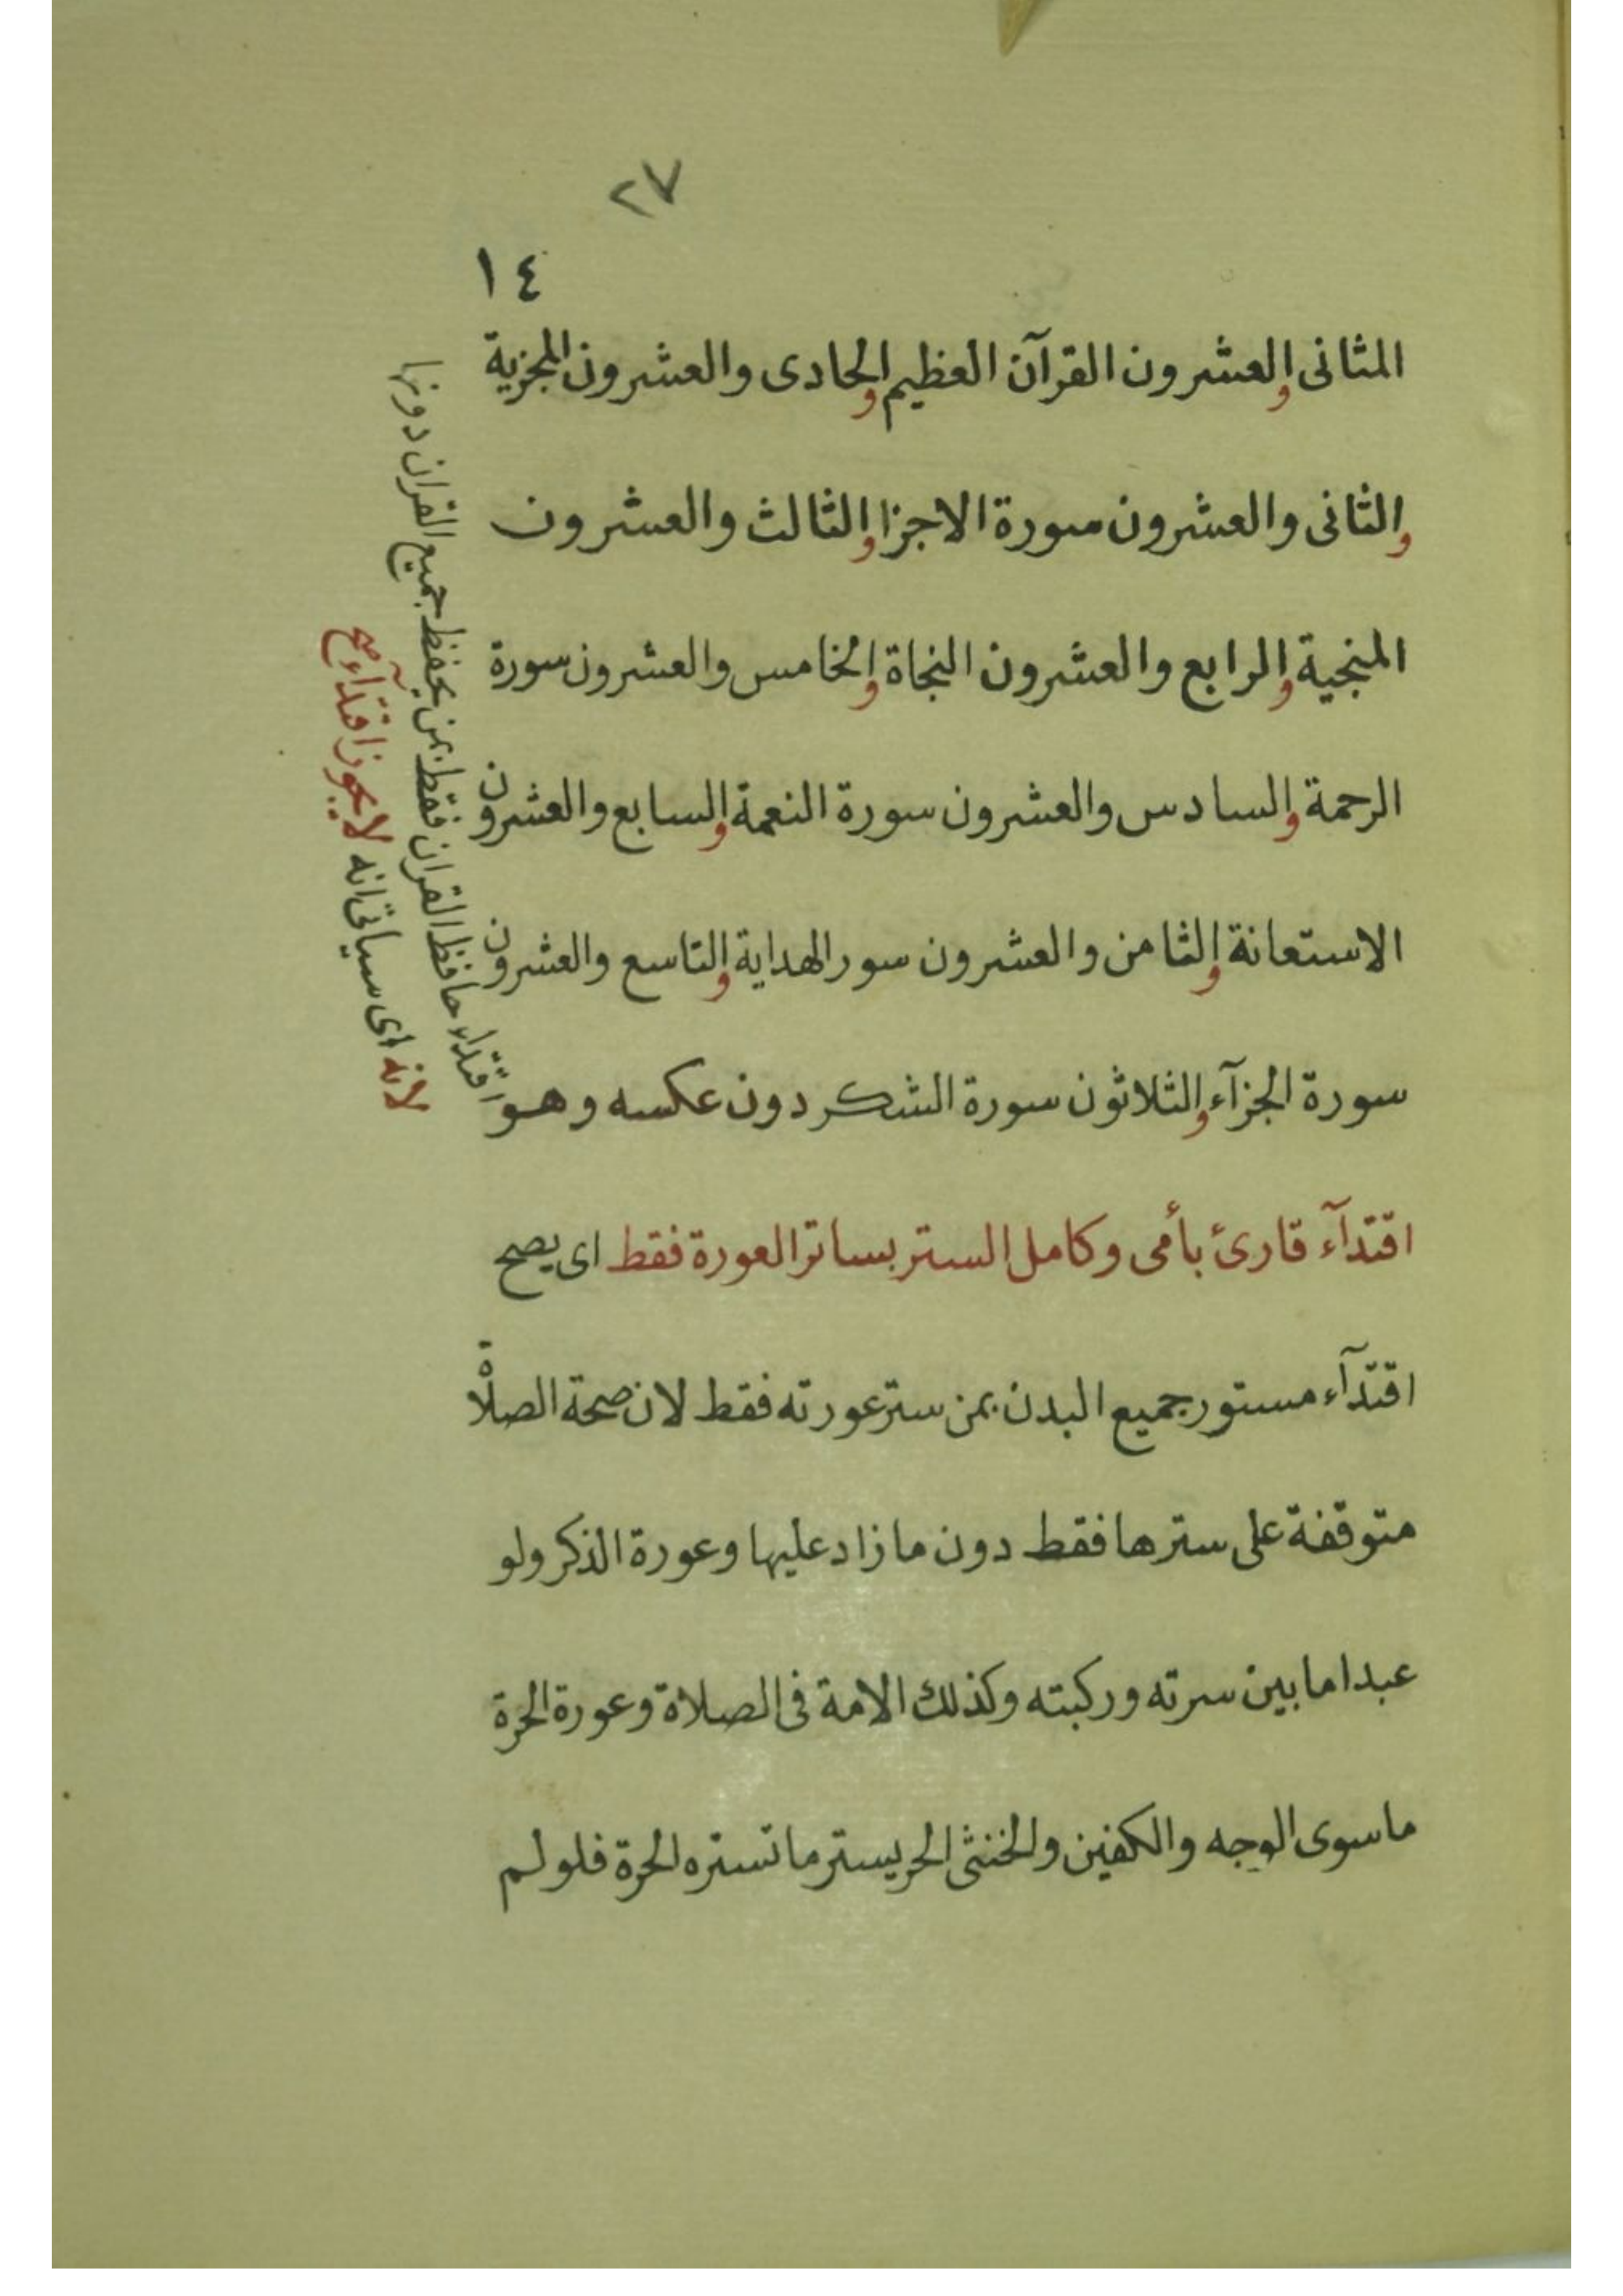 ٢٧
١٤
المثانى والعشرون القرآن العظيم والحادى والعشرون المجزية
والثانى والعشرون سورة الاجزا والثالث والعشرون
المنجية والرابع والعشرون النجاة والخامس والعشرون سورة
الرحمة والسادس والعشرون سورة النعمة والسابع والعشرون
الاستعانة والثامن والعشرون سور الهداية والتاسع والعشرون
سورة الجزآء والثلاثون سورة الشكر دون عكسه وهو
اقتدآء قارئ بأمى وكامل الستر بساتر العورة فقط اى يصح
اقتدآء مستور جميع البدن بمن ستر عورته فقط لان صحة الصلاة
متوقفة على سترها فقط دون ما زاد عليها وعورة الذكر ولو
عبدا ما بين سرته وركبته وكذلك الامة فى الصلاة وعورة الحرة
ما سوى الوجه والكفين والخنثى الحر يستر ما تستره الحرة فلو لم
اقتداء حافظ القران فقط بمن يحفظ جميع القران دونها
لانه اى سياتى انه لا يجوز اقتدآء صح